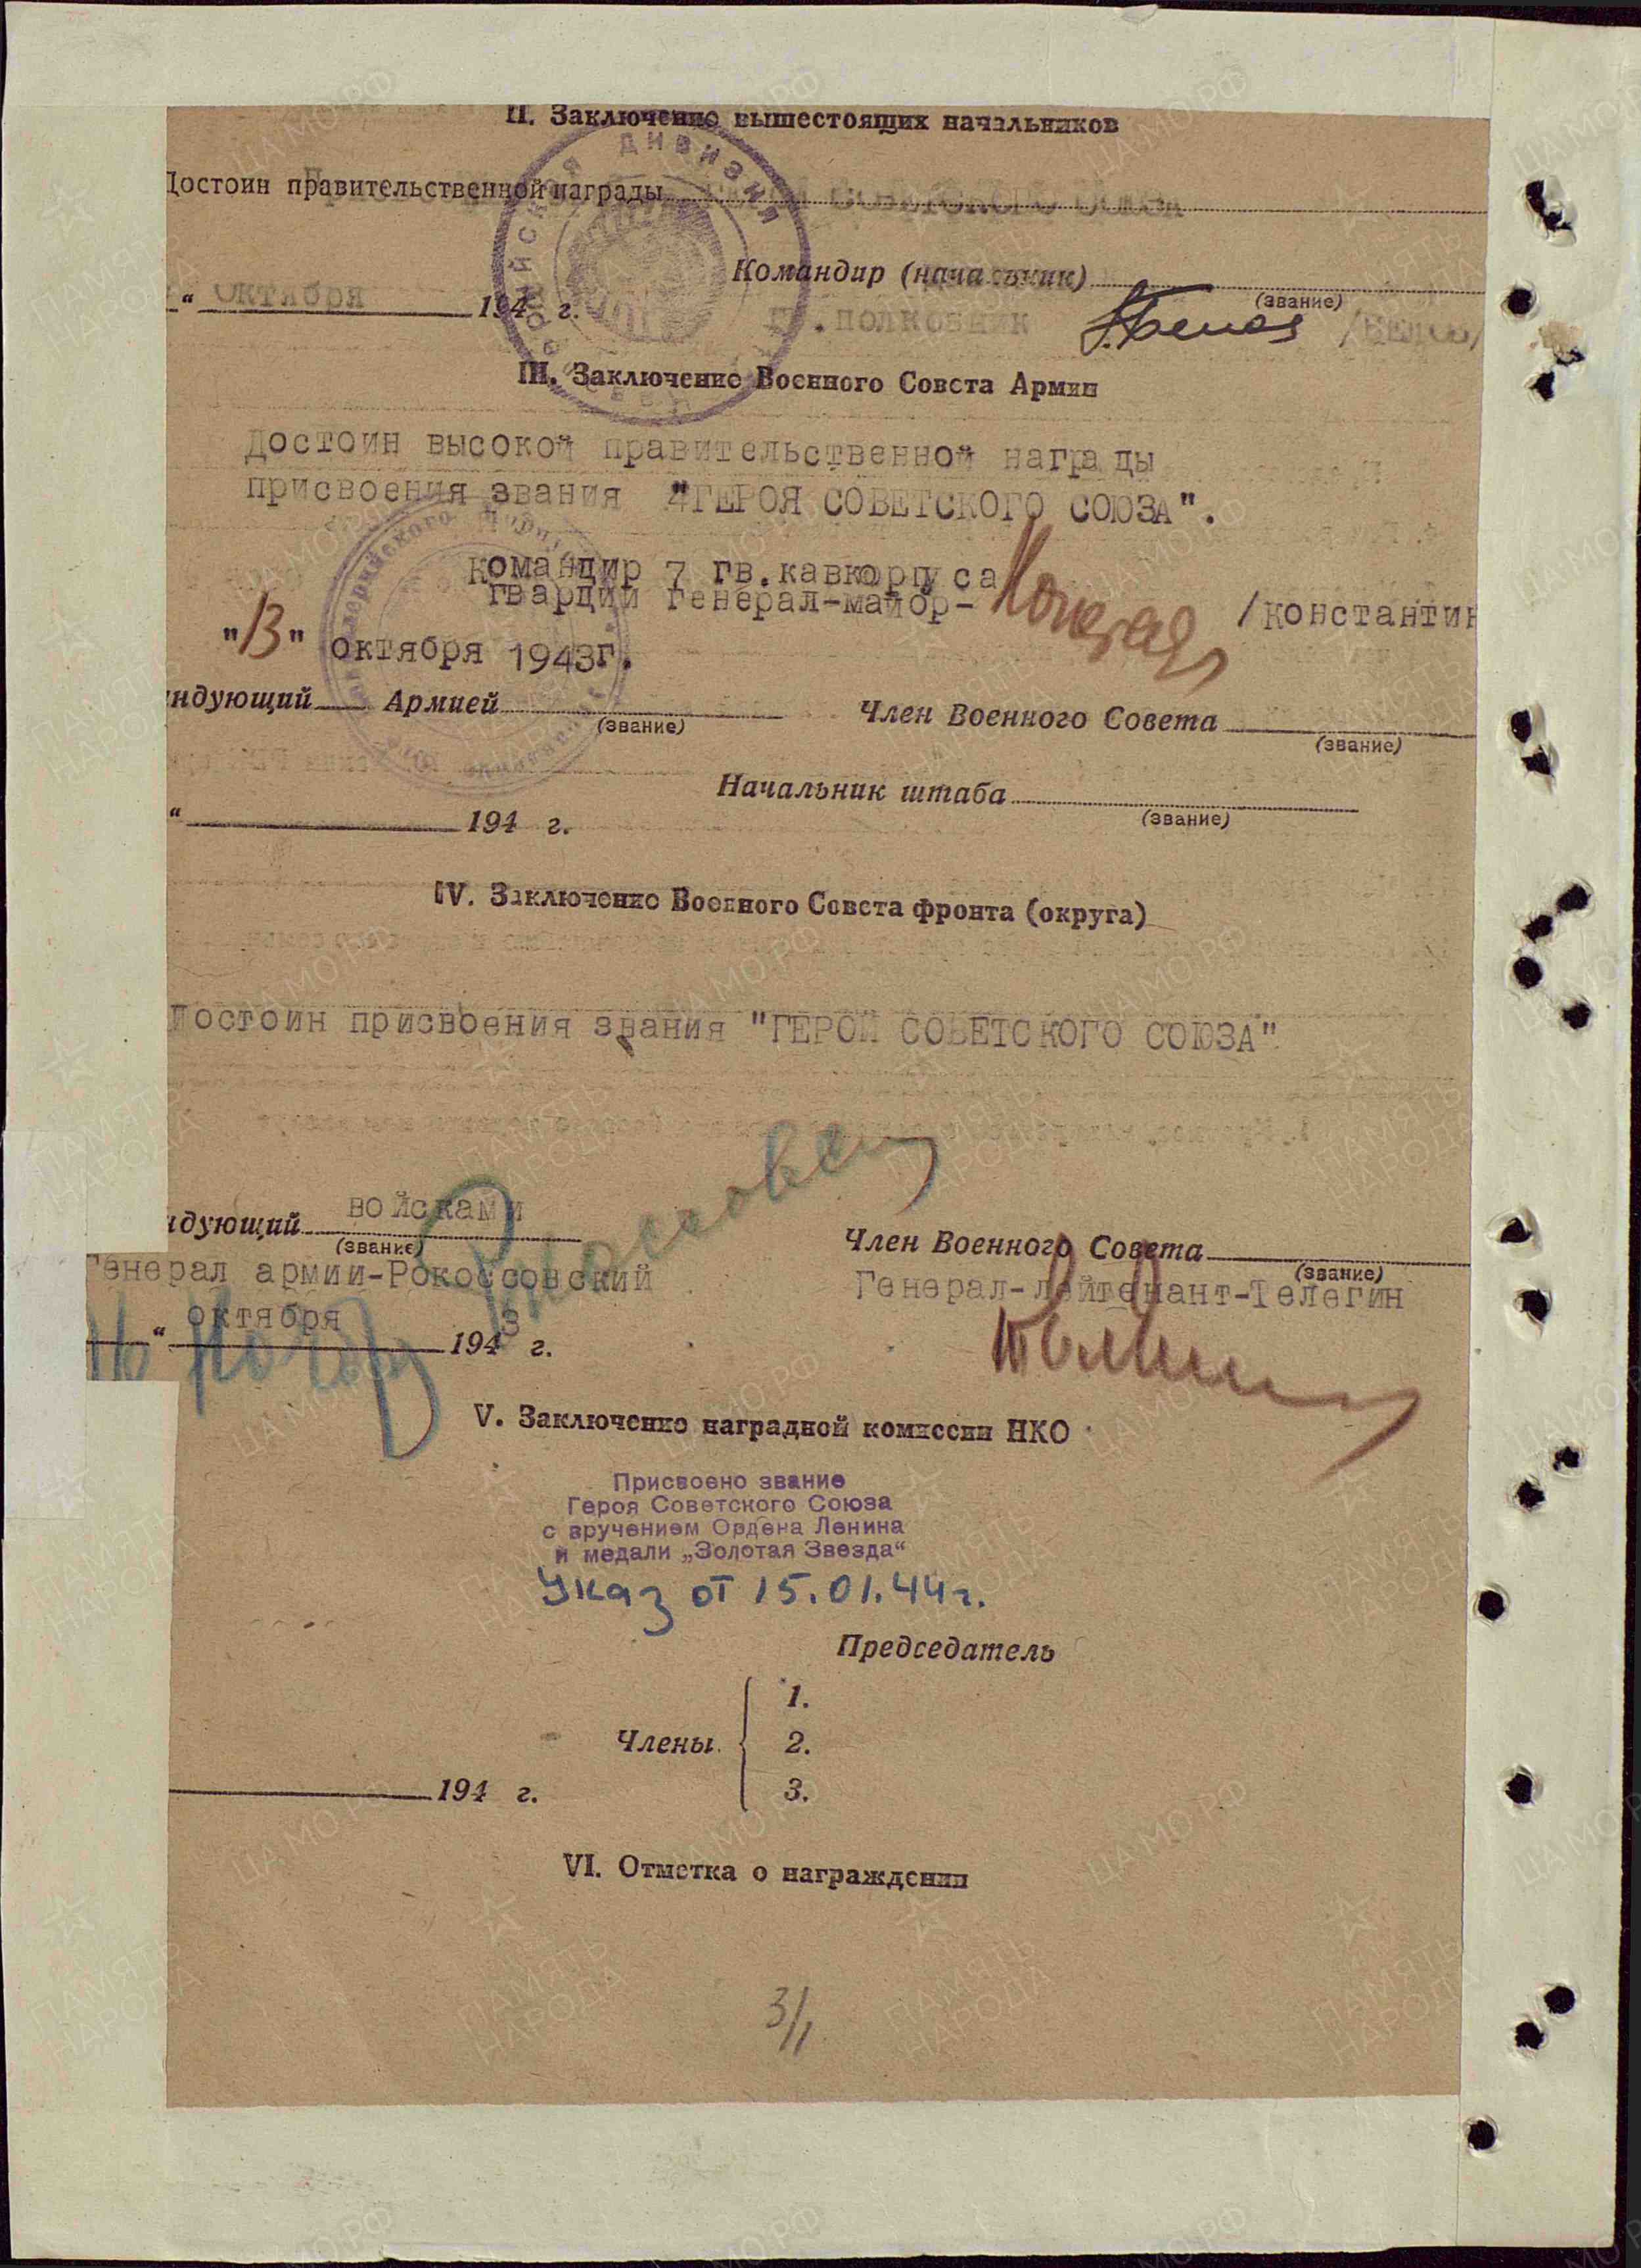 II. Заключение вышестоящих начальников
Достоин правительственной награды Советского Союза
" октября 194 г.
Командир (начальник)
(звание)
гв. полковник /Белов/
III. Заключение Военного Совета Армии
Достоин высокой правительственной награды
присвоения звания "ГЕРОЯ СОВЕТСКОГО СОЮЗА".
командир 7 гв.кавкорпуса
гвардии генерал-майор- /константин
"13" октября 1943г.
ндующий Армией
(звание)
Член Военного Совета
(звание)
Начальник штаба
(звание)
" 194 г.
IV. Заключение Военного Совета фронта (округа)
Достоин присвоения звания "ГЕРОЙ СОВЕТСКОГО СОЮЗА"
ндующий войсками
(звание)
Генерал армии-Рокоссовский
Член Военного Совета
(звание)
Генерал-лейтенант-Телегин
" октября 1943 г.
V. Заключение наградной комиссии НКО
Присвоено звание
Героя Советского Союза
с вручением Ордена Ленина
и медали „Золотая Звезда“
Указ от 15.01.44г.
Председатель
Члены
1.
2.
3.
194 г.
VI. Отметка о награждении
3/1